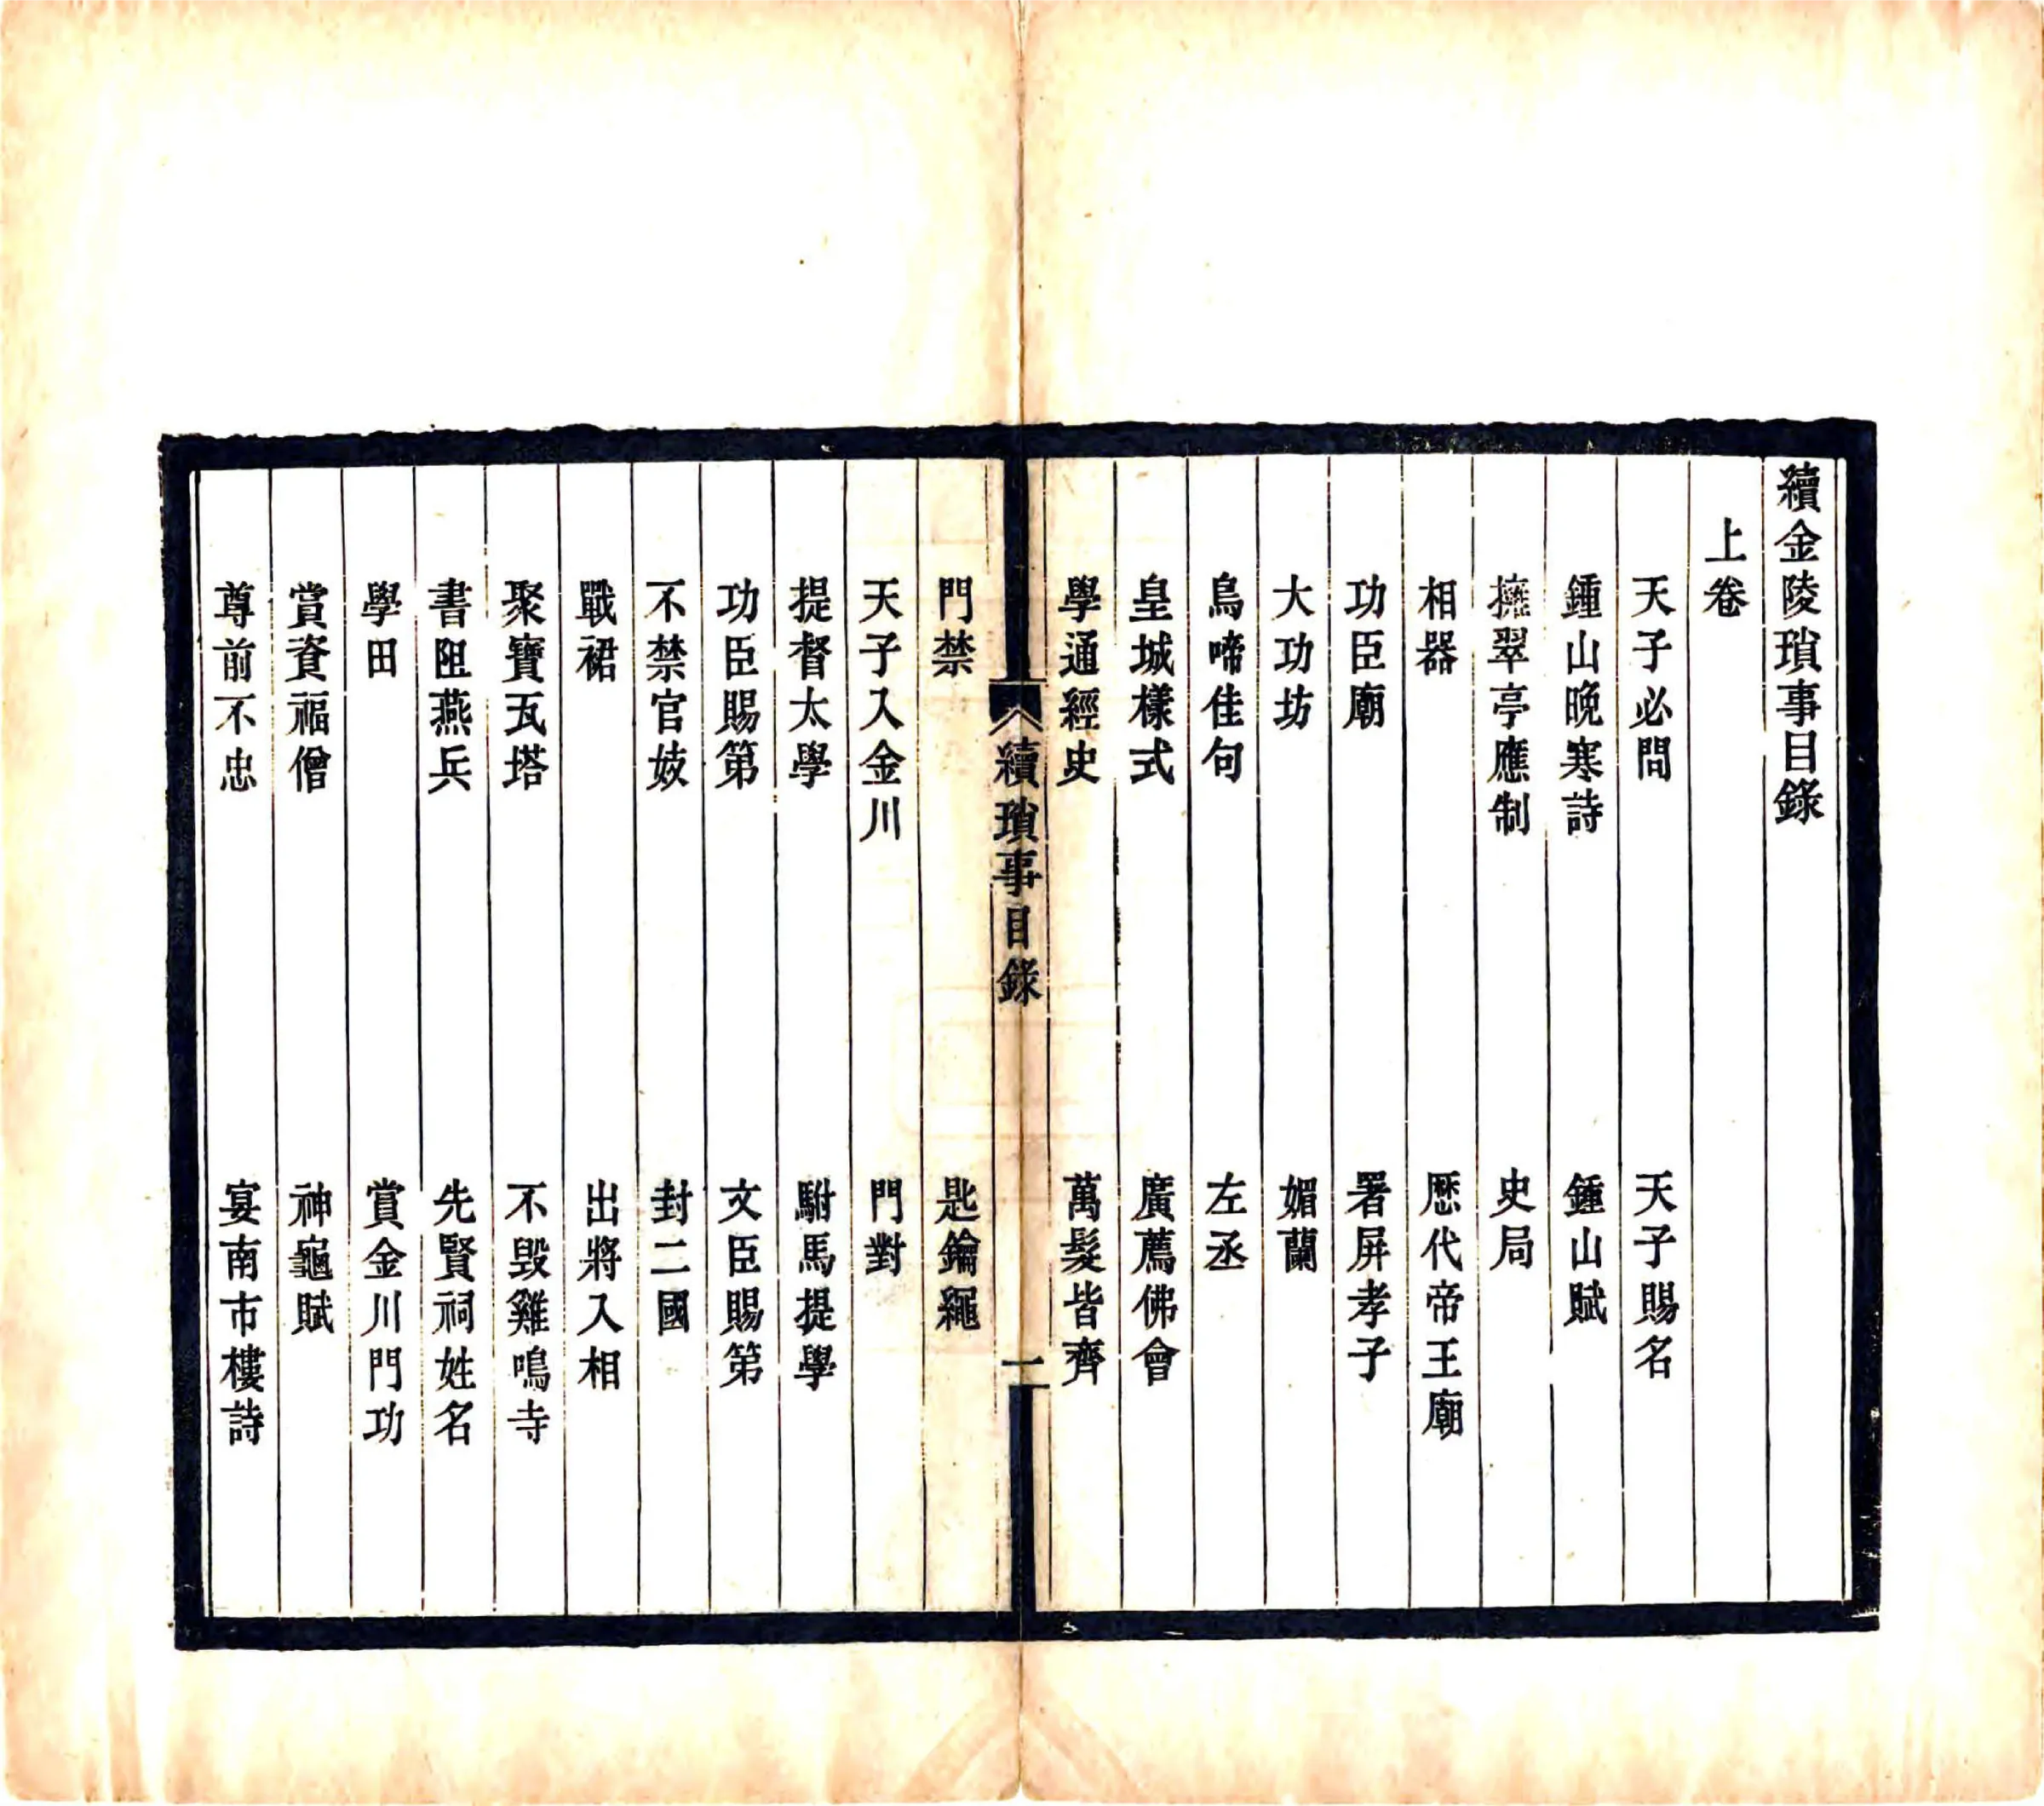 續金陵瑣事目錄
上卷
天子必問　天子賜名
鍾山晚寒詩　鍾山賦
擁翠亭應制　史局
相器　歷代帝王廟
功臣廟　署屏孝子
大功坊　媚蘭
烏啼佳句　左丞
皇城樣式　廣薦佛會
學通經史　萬髮皆齊
續瑣事目錄　一
門禁　匙鑰繩
天子入金川　門對
提督太學　駙馬提學
功臣賜第　文臣賜第
不禁官妓　封二國
戰裙　出將入相
聚寶瓦塔　不毀雞鳴寺
書阻燕兵　先賢祠姓名
學田　賞金川門功
賞資福僧　神龜賦
尊前不忠　宴南市樓詩